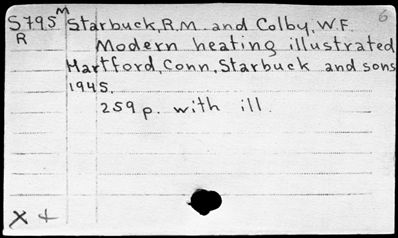 6
S795 M Starbuck, R.M. and Colby, W.F.
R Modern heating illustrated
Hartford, Conn, Starbuck and sons
1945.
259 p. with ill.
X +